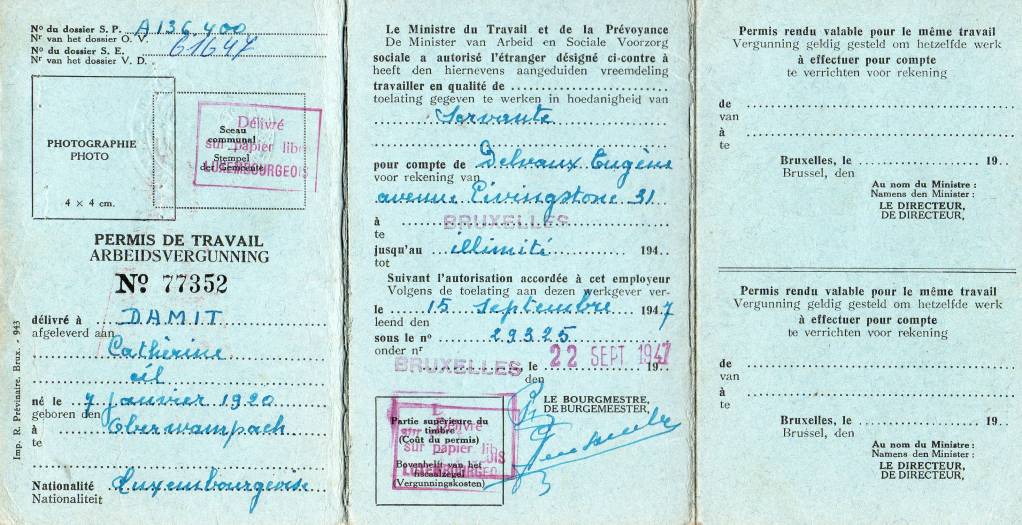 No du dossier S. P. A 136.400
Nr van het dossier O. V.
No du dossier S. E. 61647
Nr van het dossier V. D.
PHOTOGRAPHIE
PHOTO
4 × 4 cm.
Sceau
communal
Stempel
der Gemeente
Délivré
sur papier libre
LUXEMBOURGEOIS
PERMIS DE TRAVAIL
ARBEIDSVERGUNNING
No 77352
délivré à DAMIT
afgeleverd aan
Cathérine
cél
né le 7 janvier 1920
geboren den
à Oberwampach
te
Nationalité Luxembourgeoise
Nationaliteit
Imp. R. Prévinaire. Brux. - 943
Le Ministre du Travail et de la Prévoyance
De Minister van Arbeid en Sociale Voorzorg
sociale a autorisé l'étranger désigné ci-contre à
heeft den hiernevens aangeduiden vreemdeling
travailler en qualité de
toelating gegeven te werken in hoedanigheid van
Servante
pour compte de Delvaux Eugène
voor rekening van
avenue Livingstone 31
à BRUXELLES
te
jusqu'au illimité 194
tot
Suivant l'autorisation accordée à cet employeur
Volgens de toelating aan dezen werkgever ver-
le 15 Septembre 1947
leend den
sous le no 29325
onder nr
BRUXELLES le 22 SEPT 1947 19
den
LE BOURGMESTRE,
DE BURGEMEESTER,
Partie supérieure du
timbre
(Coût du permis)
Bovenhelft van het
fiscaalzegel
(Vergunningskosten)
Délivré
sur papier libre
LUXEMBOURGEOIS
Permis rendu valable pour le même travail
Vergunning geldig gesteld om hetzelfde werk
à effectuer pour compte
te verrichten voor rekening
de
van
à
te
Bruxelles, le 19
Brussel, den
Au nom du Ministre :
Namens den Minister :
LE DIRECTEUR,
DE DIRECTEUR,
Permis rendu valable pour le même travail
Vergunning geldig gesteld om hetzelfde werk
à effectuer pour compte
te verrichten voor rekening
de
van
à
te
Bruxelles, le 19
Brussel, den
Au nom du Ministre :
Namens den Minister :
LE DIRECTEUR,
DE DIRECTEUR,